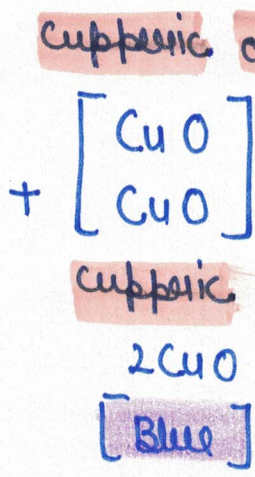 cupperic
CuO
+
CuO
cupperic
2CuO
[Blue]